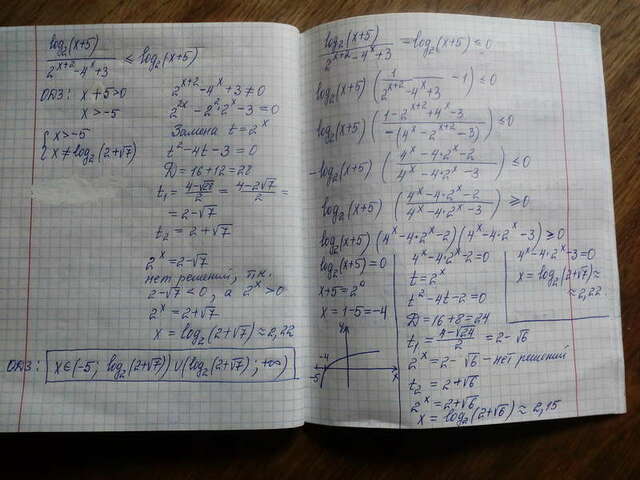 log₂(x+5) / (2^(x+2) - 4^x + 3) ≤ log₂(x+5)
ОДЗ: x + 5 > 0
x > -5
{ x > -5
{ x ≠ log₂(2+√7)
2^(x+2) - 4^x + 3 ≠ 0
2^(2x) - 2²·2^x - 3 = 0
Замена t = 2^x
t² - 4t - 3 = 0
D = 16 + 12 = 28
t₁ = (4-√28)/2 = (4-2√7)/2 =
= 2-√7
t₂ = 2+√7
2^x = 2-√7
нет решений, т.к.
2-√7 < 0, а 2^x > 0
2^x = 2+√7
x = log₂(2+√7) ≈ 2,22
ОДЗ: x ∈ (-5; log₂(2+√7)) ∪ (log₂(2+√7); +∞)
log₂(x+5) / (2^(x+2) - 4^x + 3) - log₂(x+5) ≤ 0
log₂(x+5) (1 / (2^(x+2) - 4^x + 3) - 1) ≤ 0
log₂(x+5) ((1 - 2^(x+2) + 4^x - 3) / (-(4^x - 2^(x+2) - 3))) ≤ 0
-log₂(x+5) ((4^x - 4·2^x - 2) / (4^x - 4·2^x - 3)) ≤ 0
log₂(x+5) ((4^x - 4·2^x - 2) / (4^x - 4·2^x - 3)) ≥ 0
log₂(x+5) (4^x - 4·2^x - 2) (4^x - 4·2^x - 3) ≥ 0
log₂(x+5) = 0
x + 5 = 2⁰
x = 1 - 5 = -4
y
-4
-5
x
4^x - 4·2^x - 2 = 0
t = 2^x
t² - 4t - 2 = 0
D = 16 + 8 = 24
t₁ = (4-√24)/2 = 2-√6
2^x = 2-√6 - нет решений
t₂ = 2+√6
2^x = 2+√6
x = log₂(2+√6) ≈ 2,15
4^x - 4·2^x - 3 = 0
x = log₂(2+√7) ≈
≈ 2,22